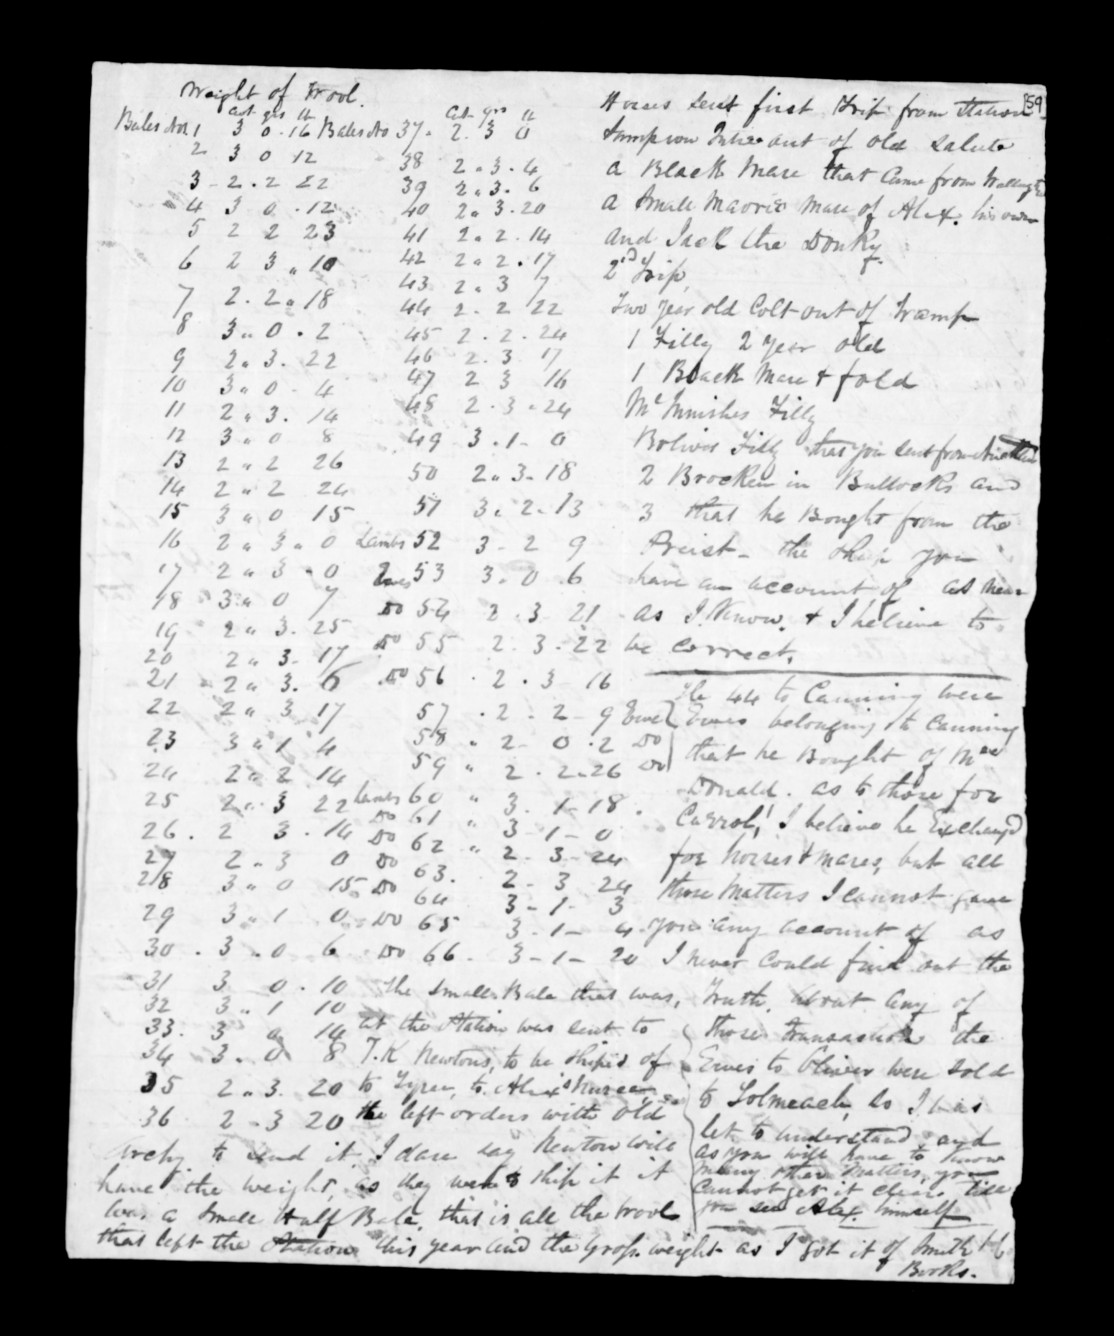 Weight of Wool.
Cwt qrs lb
Bales No 1 3 0 .16
2 3 0 12
3 - 2 . 2 22
4 3 0 . 12
5 2 2 23
6 2 3 " 10
7 2 . 2 " 18
8 3 " 0 . 2
9 2 " 3 . 22
10 3 " 0 . 4
11 2 " 3 . 14
12 3 " 0 8
13 2 " 2 26
14 2 " 2 24
15 3 " 0 15
16 2 " 3 " 0
17 2 " 3 " 0
18 3 " 0 7
19 2 " 3 . 25
20 2 " 3 . 17
21 2 " 3 . 6
22 2 " 3 17
23 3 " 1 4
24 2 " 2 14
25 2 " 3 22
26 . 2 3 . 14
27 2 - 3 0
28 3 " 0 15
29 3 " 1 0
30 . 3 . 0 6
31 3 0 . 10
32 3 " 1 10
33 . 3 0 14
34 3 . 0 8
35 2 " 3 . 20
36 2 - 3 20
Cwt qrs lb
Bales No 37 . 2 . 3 0
38 2 " 3 . 4
39 2 " 3 . 6
40 2 " 3 . 20
41 2 " 2 . 14
42 2 " 2 . 17
43 2 . 3 7
44 2 . 2 22
45 2 . 2 . 24
46 2 . 3 17
47 2 3 16
48 2 . 3 . 24
49 3 . 1 - 0
50 2 " 3 . 18
51 3 . 2 . 13
Lambs 52 3 - 2 9
53 3 . 0 . 6
Do 54 2 . 3 . 21
Do 55 2 . 3 . 22
Do 56 . 2 . 3 16
57 . 2 - 2 - 9 Ewe
58 " 2 - 0 . 2 Do
59 " 2 . 2 . 26 Do
Lambs 60 " 3 . 1 - 18
Do 61 " 3 - 1 - 0
Do 62 " 2 . 3 - 24
Do 63 . 2 - 3 24
64 3 - 1 - 3
Do 65 3 . 1 - 4
Do 66 . 3 - 1 - 20
The Small Bale that was,
at the Station was sent to
T.K Newtons, to be shiped of
to Tyree, to Alex's Nurse
he left orders with old
Archy to send it I dare say Newton will
have the weight, as they were to ship it it
was a Small Half Bale, that is all the wool
that left the Station this year and the Gross weight as I got it of Smith
Books.
59
Horses sent first Trip from Station
Sampson out of old Salute
a Black Mare that Came from
a Small Maorie Mare of Alex. his own
and Jack the Donky.
2d Trip,
Two year old Colt out of Tramp
1 Filly 2 year old
1 Black Mare & fold
McInnishes Filly
Bolivar Filly that you sent from
2 Brocken in Bullocks and
3 that he Bought from the
Preist - the Sheep you
have an account of as near
as I Know. & I believe to
be correct.
The 44 to Canning were
Ewes belonging to Canning
that he Bought of Mac
Donald. as to those for
Carrol, I believe he Exchangd
for horses & mares, but all
those Matters I cannot gave
you any account of as
I never Could find out the
Truth, about any of
those transaction the
Ewes to Oliver were sold
to Tolmeach, so I was
let to understand and
as you will have to Know
many other Matters, you
Cannot get it clear, till
you see Alex. himself